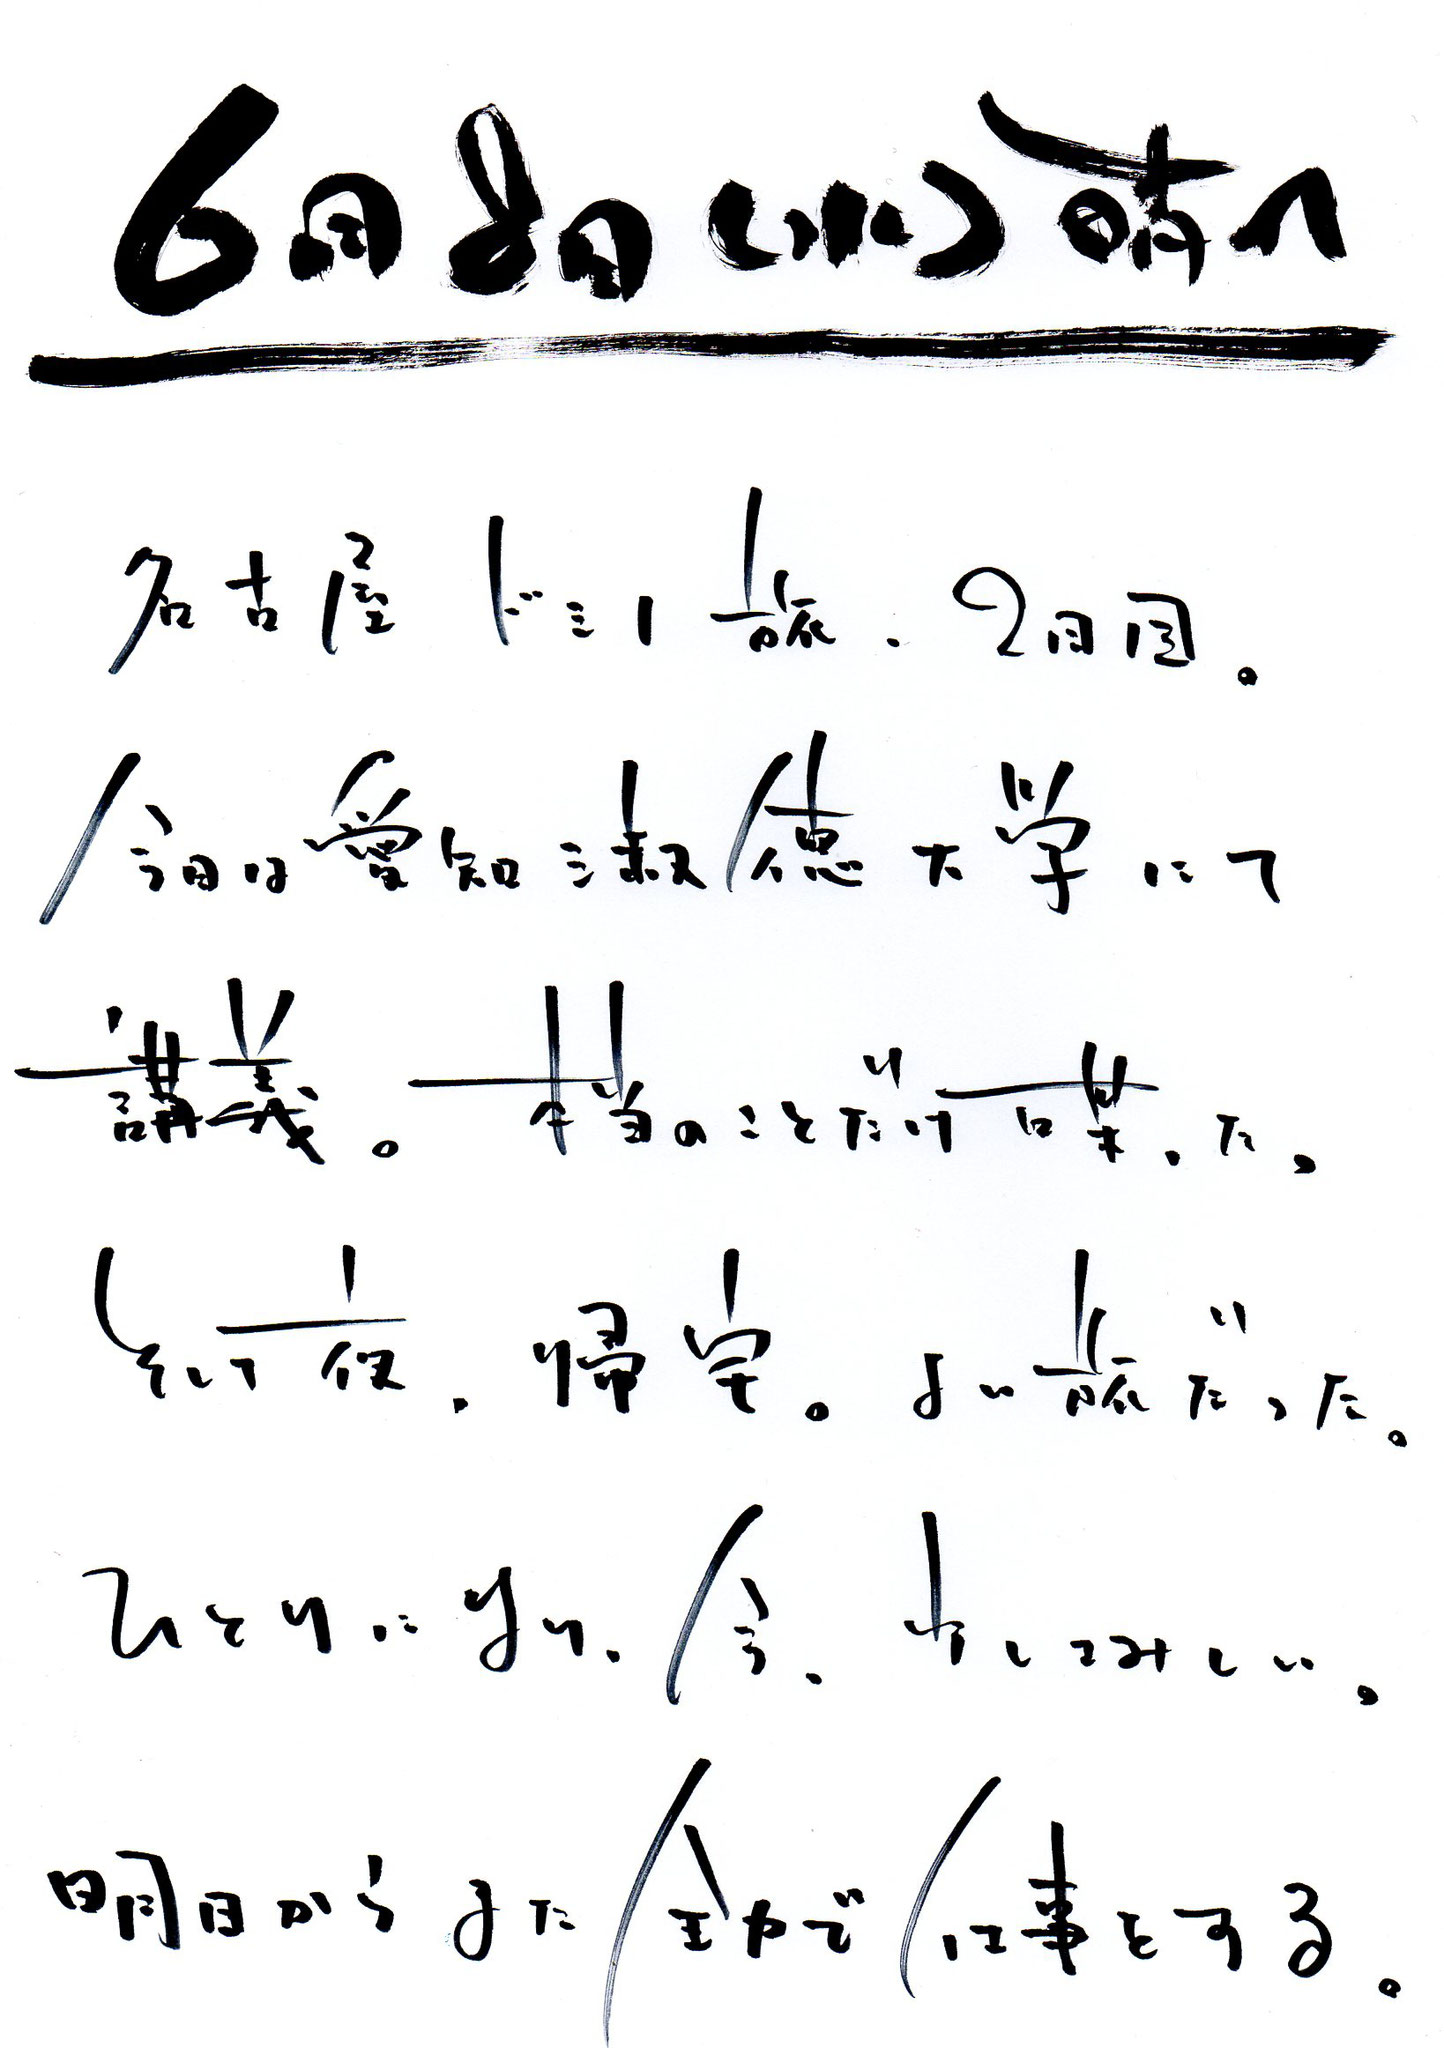 6月8日(水)晴れ
名古屋ドミノ旅、2日目。
今日は愛知淑徳大学にて
講義。本当のことだけ言葉った。
そして夜、帰宅。よい旅だった。
ひとりになり、今、少しさみしい。
明日からまた全力で仕事をする。